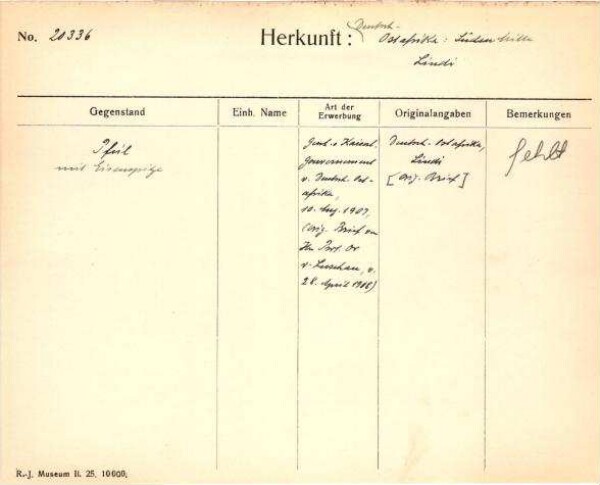 No. 20336
Herkunft: Deutsch-
Ostafrika: Süden
Lindi
Gegenstand Einh. Name Art der Erwerbung Originalangaben Bemerkungen
Pfeil
mit Eisenspitze
Kaiserl.
Gouvernement
v. Deutsch-Ost-
afrika,
10. Aug. 1907,
(Orig. Brief an
Hn Prof. Dr
v. Luschan, v.
28. April 1908)
Deutsch-Ostafrika,
Lindi
[Orig. Brief]
fehlt
R.-J. Museum B. 25. 10000.